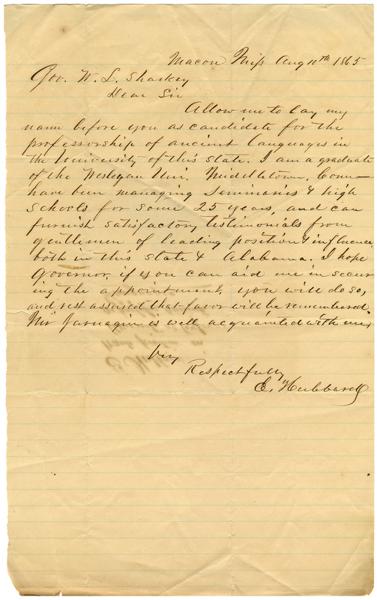 Macon Miss Aug 10th 1865
Gov. W. L. Sharkey
Dear Sir
Allow me to lay my
name before you as candidate for the
professorship of ancient languages in
the University of this state. I am a graduate
of the Wesleyan Uni. Middletown, Conn—
have been managing Seminaries & high
schools for some 25 years, and can
furnish satisfactory testimonials from
gentlemen of leading position & influence
both in this state & Alabama. I hope
Governor, if you can aid me in secur
ing the appointment, you will do so,
and rest assured that favor will be remembered.
Mr Jarnagin is well acquainted with me.
Very
Respectfully
E. Hubbard